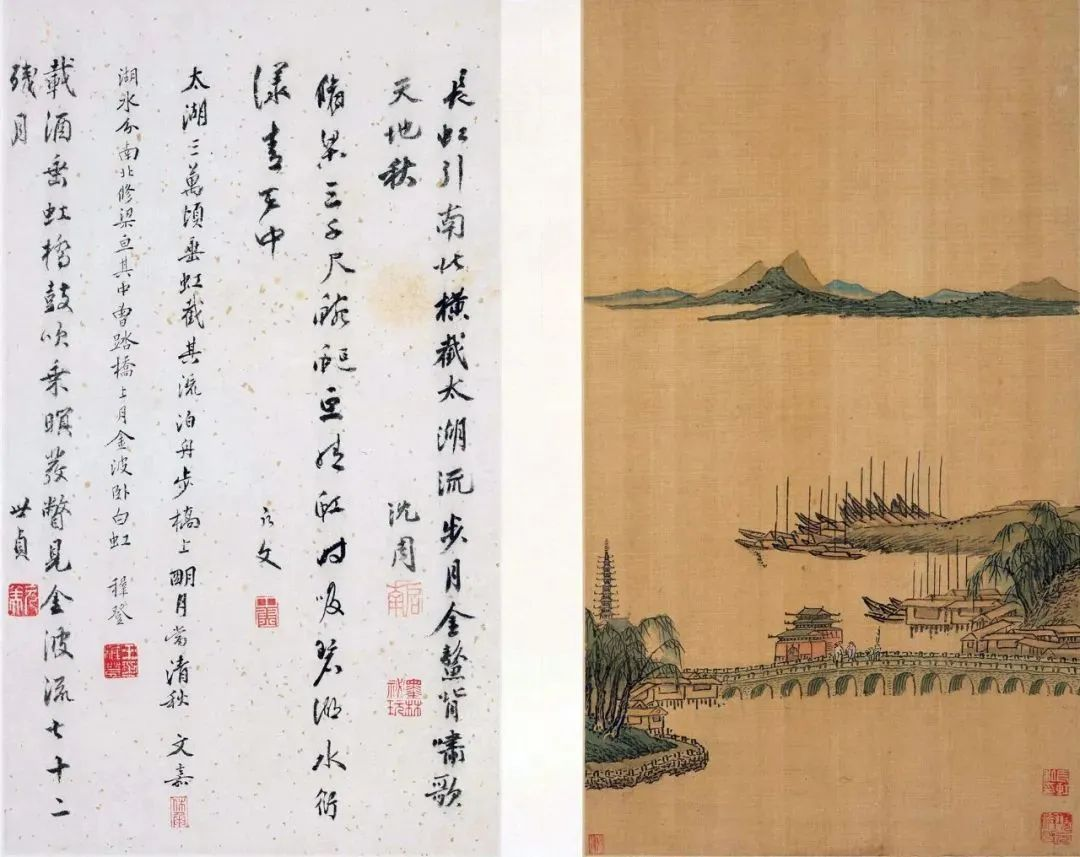 長虹引南北橫截太湖流步月金鰲背嘯歌
天地秋 沈周
啟南
墨林秘玩
脩梁三千尺亘晴虹時吸碧湖水衍
漾青天中 文
太湖三萬頃垂虹截其流泊舟步橋上明月當清秋 文嘉
湖水分南北修梁亘其中曾踏橋上月金波卧白虹 穉登
載酒垂虹橋鼓吹乘暝發瞥見金波流七十二
殘月 世貞